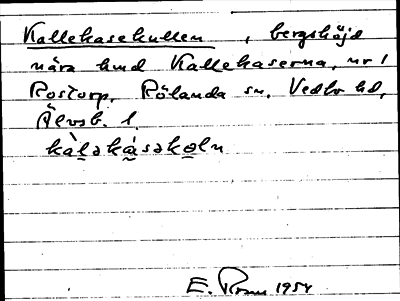 Kallekasekullen, bergshöjd
nära hmd Kallekaserna, nr 1
Rostorp, Rölanda sn, Vedbo hd,
Älvsb. l.
kàləkásəkoln
E. 1954